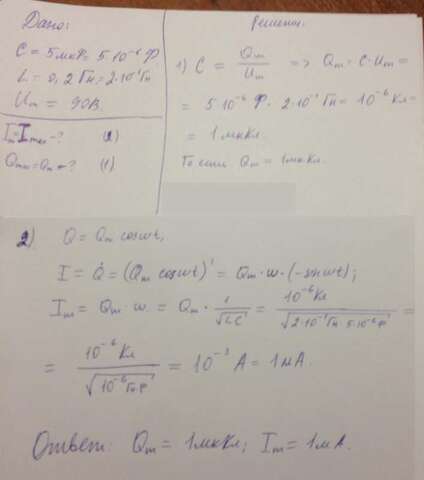 Дано:
C = 5 мкФ = 5·10⁻⁶ Ф
L = 0,2 Гн = 2·10⁻¹ Гн
Um = 90 В
Im = Imax - ? (2)
Qmax = Qm - ? (1)
Решение:
1) C = Qm/Um => Qm = C·Um =
= 5·10⁻⁶ Ф · 2·10⁻¹ Гн = 10⁻⁶ Кл =
= 1 мкКл.
То есть Qm = 1 мкКл.
2) Q = Qm cosωt;
I = Q̇ = (Qm cosωt)' = Qm·ω·(-sinωt);
Im = Qm·ω = Qm · 1/√LC = 10⁻⁶ Кл/√2·10⁻¹ Гн·5·10⁻⁶ Ф =
= 10⁻⁶ Кл/√10⁻⁶ Гн·Ф = 10⁻³ А = 1 мА.
Ответ: Qm = 1 мкКл; Im = 1 мА.